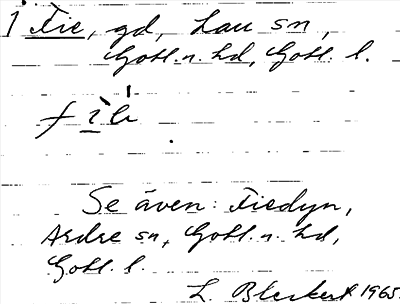 1 Fie, gd, Lau sn,
Gotl. n. hd, Gotl. l.
Se även: Fiedyn,
Ardre sn, Gotl. n. hd,
Gotl. l.
L. Bleckert 1965